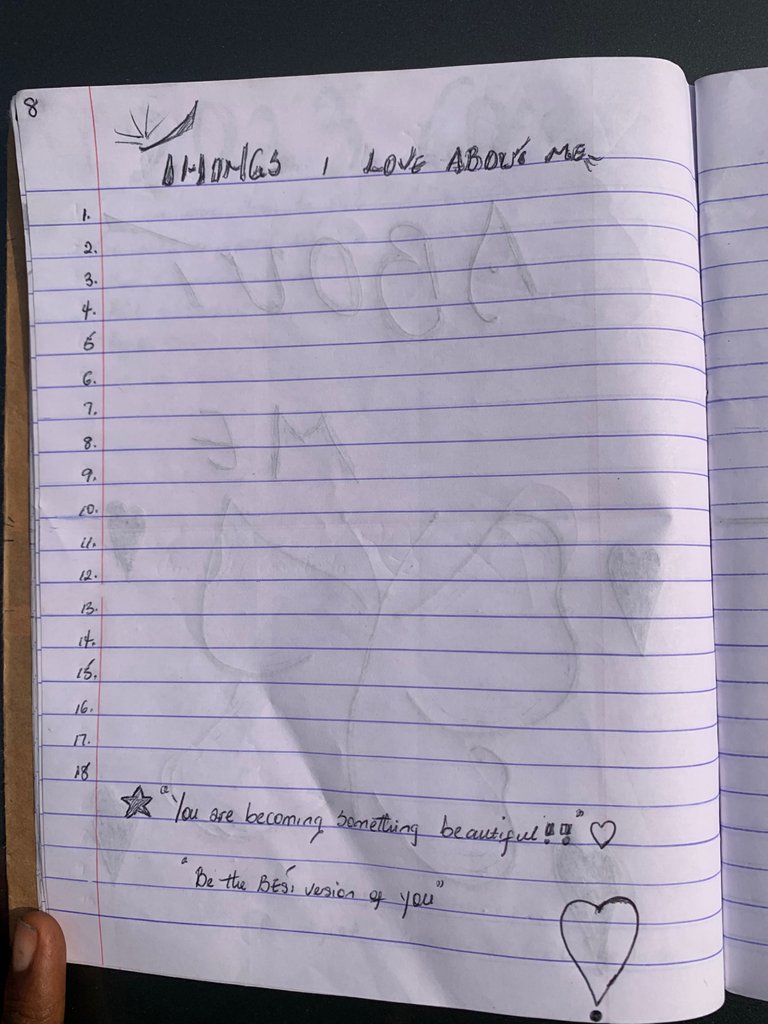 8
THINGS I LOVE ABOUT ME
1.
2.
3.
4.
5
6.
7.
8.
9.
10.
11.
12.
13.
14.
15.
16.
17.
18
"You are becoming something beautiful!!"
"Be the BEST version of you"